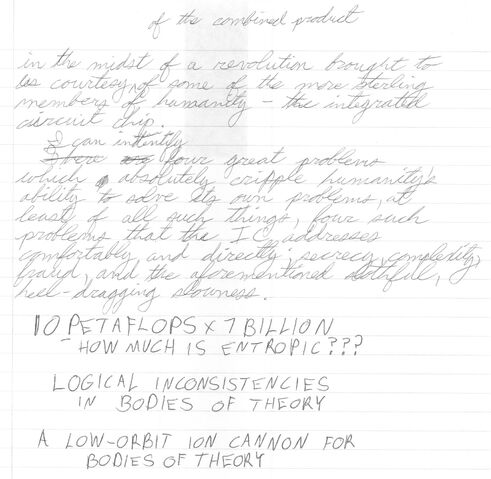 of the combined product
in the midst of a revolution brought to
us courtesy of some of the more sterling
members of humanity – the integrated
circuit chip.
I can
There are four great problems
which absolutely cripple humanity's
ability to solve its own problems, at
least of all such things, four such
problems that the IC addresses
comfortably, and directly; secrecy, complexity,
fraud, and the aforementioned slothful,
heel-dragging slowness.
10 PETAFLOPS x 7 BILLION
– HOW MUCH IS ENTROPIC???
LOGICAL INCONSISTENCIES
IN BODIES OF THEORY
A LOW-ORBIT ION CANNON FOR
BODIES OF THEORY